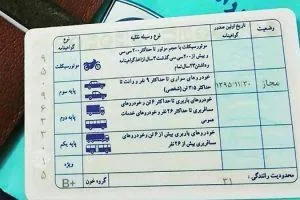 وضعیت
تاریخ اولین صدور گواهینامه
نوع وسیله نقلیه
نوع گواهینامه
موتورسیکلت با حجم موتور تا حداکثر ۲۰۰ سی سی
و بیش از ۲۰۰ سی سی گذشت ۳ سال از اخذ گواهینامه و
داشتن ۲۳ سال تمام
موتورسیکلت
مجاز
۱۳۹۵/۱۱/۳۰
خودروهای سواری تا حداکثر ۹ نفر و وانت تا
حداکثر ۳/۵ تن (شخصی)
پایه سوم
خودروهای باربری تا حداکثر ۶ تن و خودروهای
مسافربری تا حداکثر ۲۶ نفر و خودروهای خدمات
عمومی
پایه دوم
خودروهای باربری بیش از ۶ تن و خودروهای
مسافربری بیش از ۲۶ نفر
پایه یکم
ویژه
محدودیت رانندگی :
۳۱
گروه خون :
B+